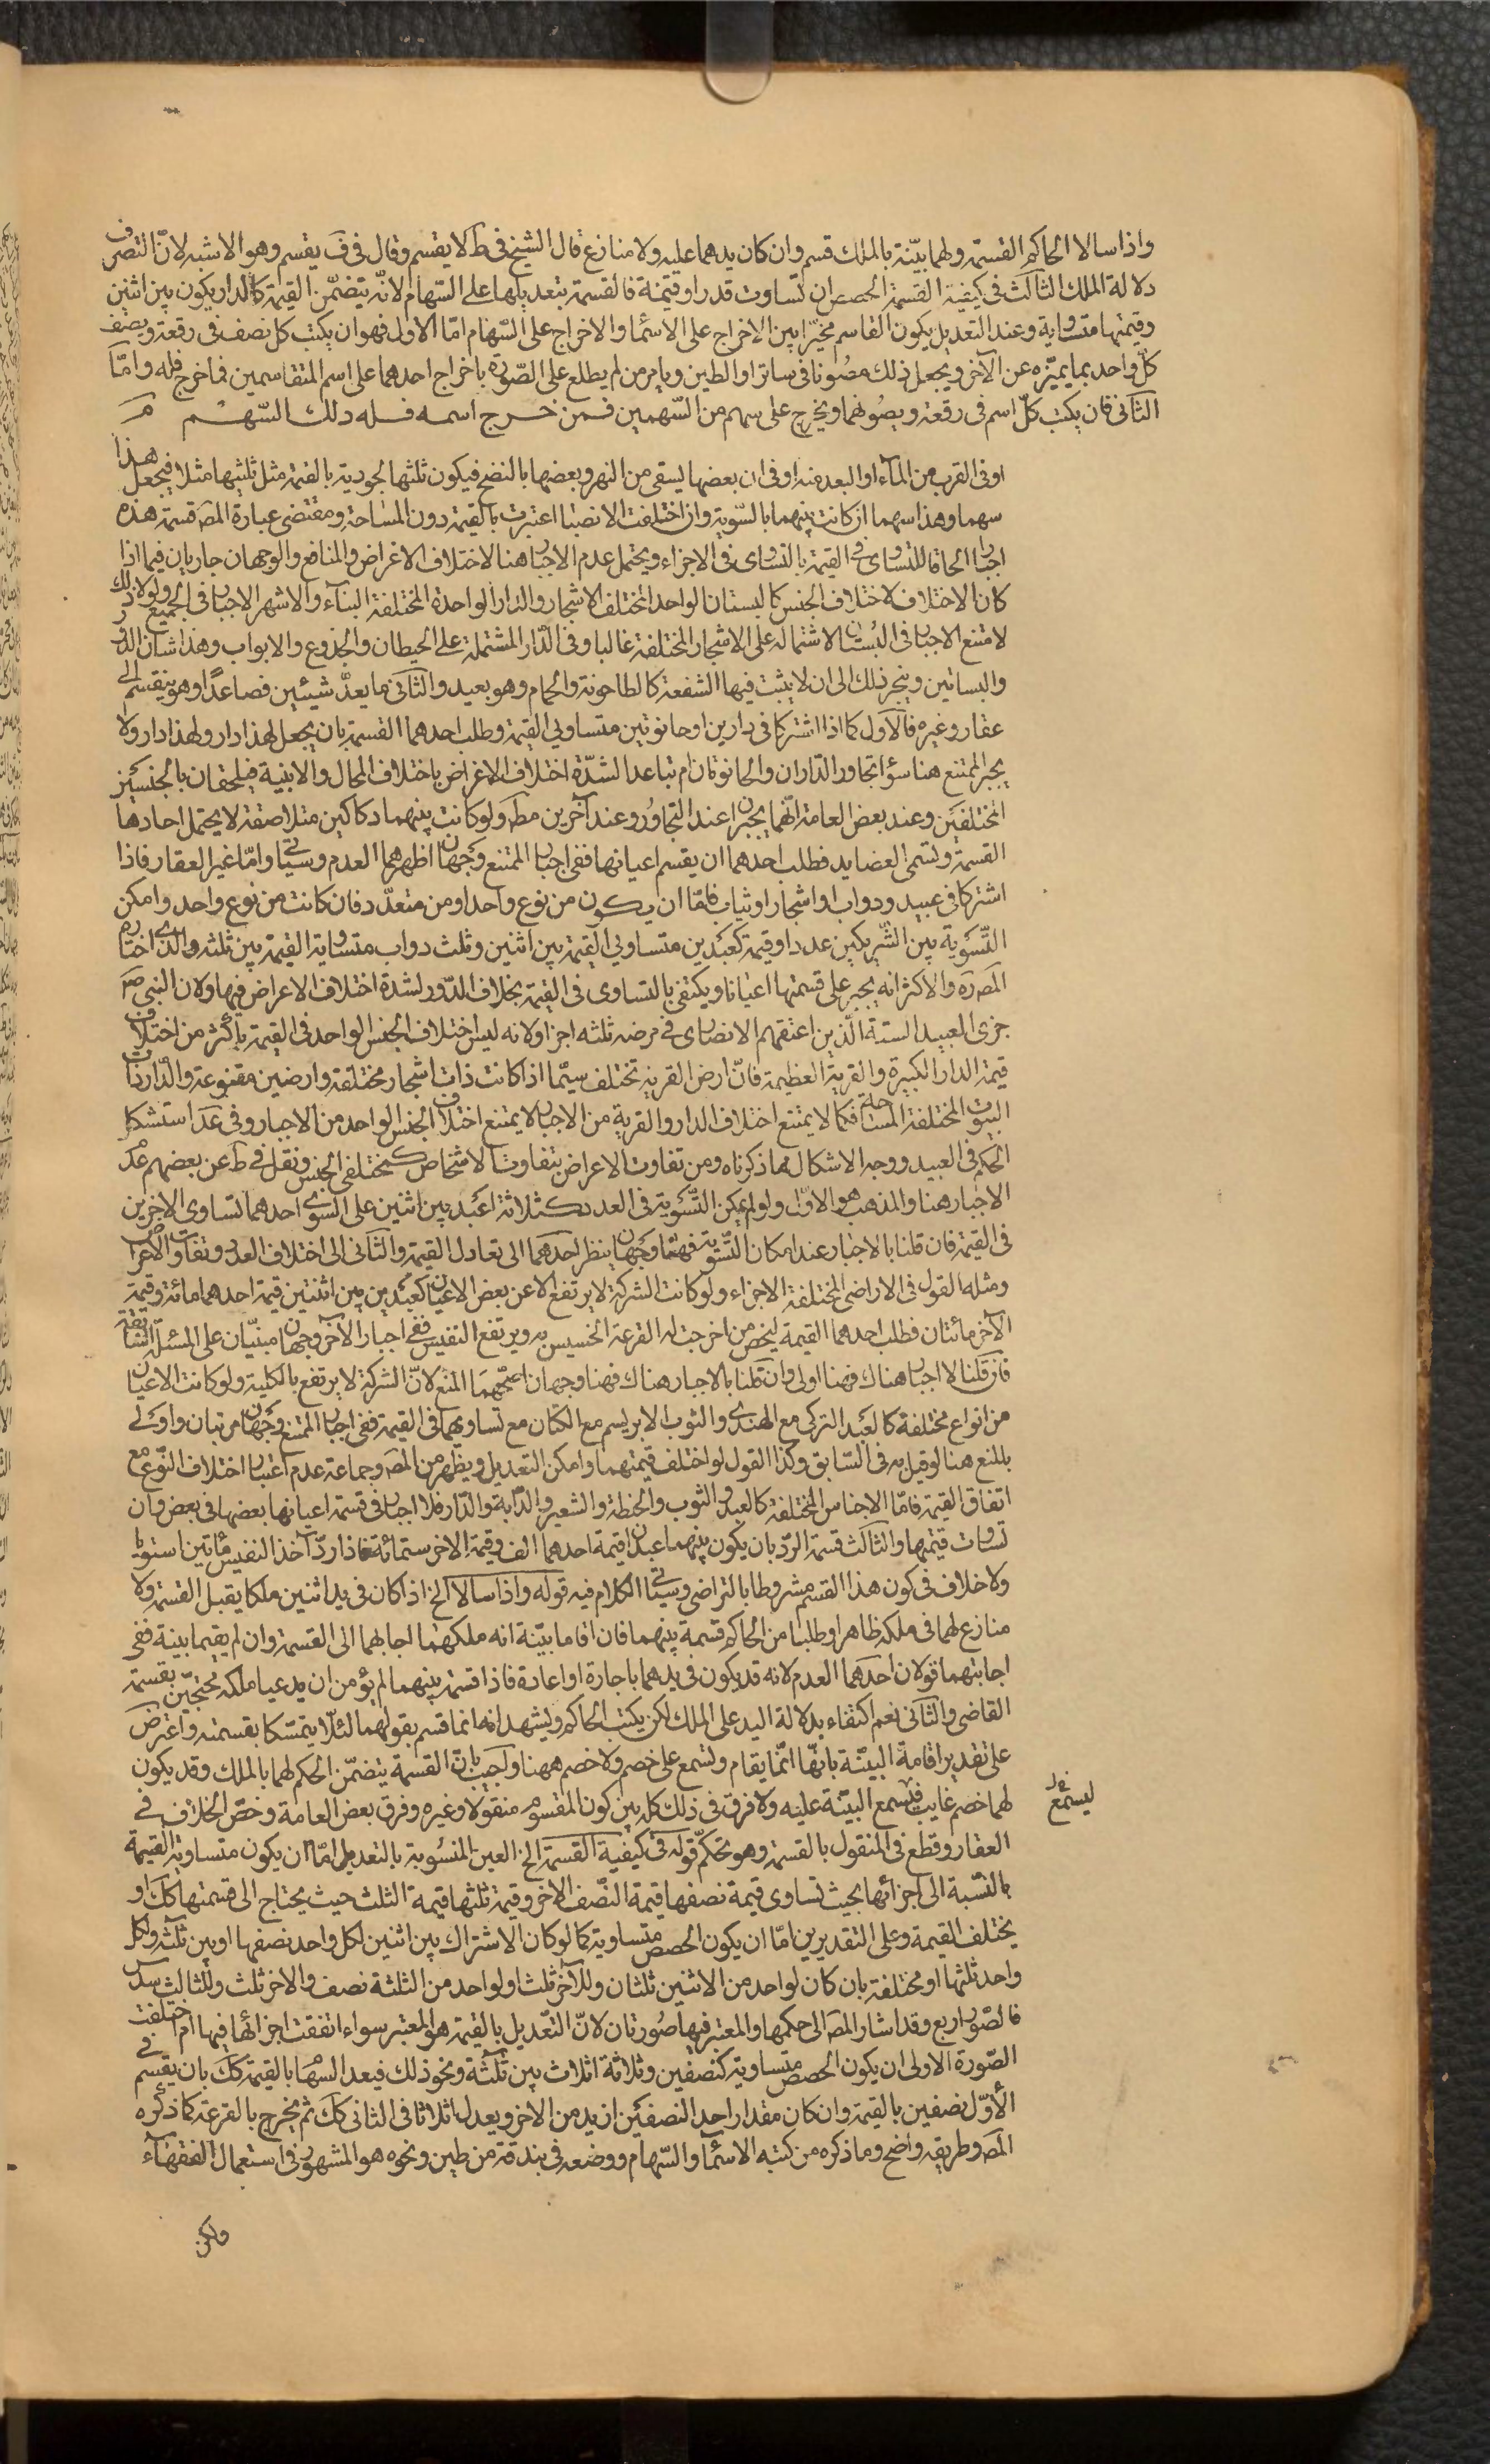 واذا سالا الحاكم القسمة ولهما بيّنة بالملك قسم وان كان يدهما عليه ولا منازع قال الشيخ فى ط لا يقسم وقال فى ف يقسم وهو الاشبه لانّ التصرف
دلالة الملك الثالث فى كيفية القسمة الحصص ان تساوت قدرا وقيمة فالقسمة بتعديلها على السّهام لانّه يتضمّن القيمة كالدار يكون بين اثنين
وقيمتها متساوية وعند التعديل يكون القاسم مخيّرا بين الاخراج على الاسمآ والاخراج على السّهام امّا الاول فهو ان يكتب كل نصف فى رقعة ويصف
كلّ واحد بما يميّزه عن الآخر ويجعل ذلك مصُونا فى ساتر او الطين ويامر من لم يطلع على الصّورة باخراج احدهما على اسم المتقاسمين فما خرج فله وامّا
الثانى فان يكتب كلّ اسم فى رقعة ويصُونهما ويخرج على سهم من السّهمين فمن خرج اسمه فله ذلك السّهم مـ
او فى القرب من المآء او البعد منه او فى ان بعضها يسقى من النهر وبعضها بالنضح فيكون ثلثها لجوديته بالقيمة مثل ثلثيها مثلا فيجعل هذا
سهما وهذا سهما ان كانت بينهما بالسّوية وان اختلفت الانصبا اعتبرت بالقيمة دون المساحة ومقتضى عبارة المص قسمة هذه
اجبارا الحاقا للتساوى فى القيمة بالتساوى فى الاجزاء ويحتمل عدم الاجبار هنا لاختلاف الاغراض والمنافع والوجهان جاريان فيما اذا
كان الاختلاف لاختلاف الجنس كالبستان الواحد المختلف الاشجار والدار الواحدة المختلفة البنآء والاشهر الاجبار فى الجميع ولولا ذلك
لامتنع الاجبار فى البُستان لاشتماله على الاشجار المختلفة غالبا وفى الدّار المشتملة على الحيطان والجذوع والابواب وهذا شان الدور
والبساتين وينجر ذلك الى ان لا يثبت فيها الشفعة كالطاحونة والحمام وهو بعيد والثانى ما يعدّ شيئين فصاعدًا وهو ينقسم الى
عقار وغيره فالاوّل كما اذا اشتركا فى دارين او حانوتين متساويى القيمة وطلب احدهما القسمة بان يجعل لهذا دار ولهذا دار ولا
يجبر الممتنع هنا سواء تجاور الدّاران والحانوتان ام تباعدا لشدّة اختلاف الاغراض باختلاف المحال والابنية فيلحقان بالجنسين
المختلفين وعند بعض العامة انّهما يجبران عند التجاوُر وعند آخرين مطَ ولو كانت بينهما دكاكين متلاصقة لا يحتمل احادها
القسمة وتسمى العضايد فطلب احدهما ان يقسم اعيانها ففى اجبار الممتنع وجهان اظهرهما العدم وسياتى وامّا غير العقار فاذا
اشتركا فى عبيد ودواب او اشجار او ثياب فامّا ان يكون من نوع واحد او من متعدّد فان كانت من نوع واحد وامكن
التّسوية بين الشّريكين عددا وقيمة كعَبدين متساويى القيمة بين اثنين وثلث دواب متساوية القيمة بين ثلثه والّذى اختاره
المصَ رَه والاكثر انه يجبر على قسمتها اعيانا ويكتفى بالتساوى فى القيمة بخلاف الدّور لشدة اختلاف الاغراض فيها ولان النبى صَ
جزى العبيد الستة الّذين اعتقهم الانصارى فى مرضه ثلثه اجزا ولانه ليس اختلاف الجنس الواحد فى القيمة باكثر من اختلاف
قيمة الدار الكبيرة والقرية العظيمة فانّ ارض القرية تختلف سيّما اذا كانت ذات اشجار مختلفة وارضين متنوعة والدّار ذات
البيوت المختلفة المساحة فكما لا يمتنع اختلاف الدار والقرية من الاجبار لا يمتنع اختلاف الجنس الواحد من الاجبار وفى عَدَ استشكل
الحكم فى العبيد ووجه الاشكال مما ذكرناه ومن تفاوت الاغراض بتفاوت الاشخاص كمختلفى الجنس ونقل فى ط عن بعضهم عدم
الاجبار هنا والمذهب هو الاوّل ولو لم يمكن التّسوية فى العدد كثلاثة اعبد بين اثنين على السّوى احدهما تساوى الاخرين
فى القيمة فان قلنا بالاجبار عند امكان التّسوية فههنا وجهان ينظر احدهما الى تعادل القيمة والثانى الى اختلاف العدد وتفاوت الاغراض
ومثله القول فى الاراضى المختلفة الاجزاء ولو كانت الشركة لا يرتفع الا عن بعض الاعيان كعبدين بين اثنين قيمة احدهما مائة وقيمة
الآخر مائتان فطلب احدهما القيمة ليخص من اخرجت له القرعة الخسيس به ويرتفع النفيس ففى اجبار الآخر وجهان مبنيّان على المسئلة السّابقة
فان قلنا لا اجبار هناك فهنا اولى وان قلنا بالاجبار هناك فهنا وجهان اصحّهما المنع لانّ الشركة لا يرتفع بالكلية ولو كانت الاعيان
من انواع مختلفة كالعَبد التركى مع الهندى والثوب الابريسم مع الكتان مع تساويهما فى القيمة ففى اجبار الممتنع وجهان مرتبان واولى
بالمنع هنا لو قيل به فى السّابق وكذا القول لو اختلف قيمتهما وامكن التعديل ويظهر من المصَ وجماعة عدم اعتبار اختلاف النّوع مع
اتفاق القيمة فامّا الاجناس المختلفة كالعبد والثوب والحنطة والشعير والدّابة والدّار فلا اجبار فى قسمة اعيانها بعضها فى بعض وان
تساوت قيمتها والثالث قسمة الردّ بان يكون بينهما عبدان قيمة احدهما الف وقيمة الاخر ستمائة فاذا ردّ آخذ النفيس مأتين استويا
ولا خلاف فى كون هذا القسم مشروطا بالتراضى وسياتى الكلام فيه قوله واذا سالا الخ اذا كان فى يد اثنين ملكا يقبل القسمة ولا
منازع لهما فى ملكه ظاهرا وطلبا من الحاكم قسمة بينهما فان اقاما بيّنة انه ملكهما اجابهما الى القسمة وان لم يقيما بينة ففى
اجابتهما قولان احدهما العدم لانه قد يكون فى يدهما باجارة او اعارة فاذا قسمه بينهما لم يؤمن ان يدعيا ملكه محتجّين بقسمة
القاضى والثانى نعم اكتفاء بدلالة اليد على الملك لكن يكتب الحاكم ويشهد انه انما قسم بقولهما لئلّا يتمسّكا بقسمته واعترض
على تقدير اقامة البيّنة بانّها انّما يقام وتسمع على خصم ولا خصم ههنا واجيب بانّ القسمة يتضمّن الحكم لهما بالملك وقد يكون
ليسمع
لهما خصم غايب فيسمع البيّنة عليه ولا فرق فى ذلك كله بين كون المقسوم منقولا وغيره وفرق بعض العامة وخصّ الخلاف فى
العقار وقطع فى المنقول بالقسمة وهو تحكّم قوله فى كيفية القسمة الخ العين المنسُوبة بالتعديل امّا ان يكون متساوية القيمة
بالنّسبة الى اجزائها بحيث تساوى قيمة نصفها قيمة النّصف الاخر وقيمة ثلثها قيمة الثلث حيث يحتاج الى قسمتها كك او
يختلف القيمة وعلى التقديرين امّا ان يكون الحصص متساوية كما لو كان الاشتراك بين اثنين لكل واحد نصفها او بين ثلثه ولكل
واحد ثلثها او مختلفة بان كان لواحد من الاثنين ثلثان وللآخر ثلث او لواحد من الثلثة نصف والاخر ثلث وللثالث سدس
فالصّور اربع وقد اشار المصَ الى حكمها والمعتبر فيها صُورتان لانّ التّعديل بالقيمة هو المعتبر سواء اتفقت اجزائها فيها ام اختلفت
الصّورة الاولى ان يكون الحصص متساوية كنصفين وثلاثة اثلاث بين ثلثة ونحو ذلك فيعدل السّهام بالقيمة كك بان يقسم فى
الأوّل نصفين بالقيمة وان كان مقدار احد النصفين ازيد من الاخر ويعدل اثلاثا فى الثانى كك ثم يخرج بالقرعة كما ذكره
المصَ وطريقه واضح وما ذكره من كتبه الاسمآ والسّهام ووضعه فى بندقة من طين ونحوه هو المشهور فى استعمال الفقهآء
ولكن